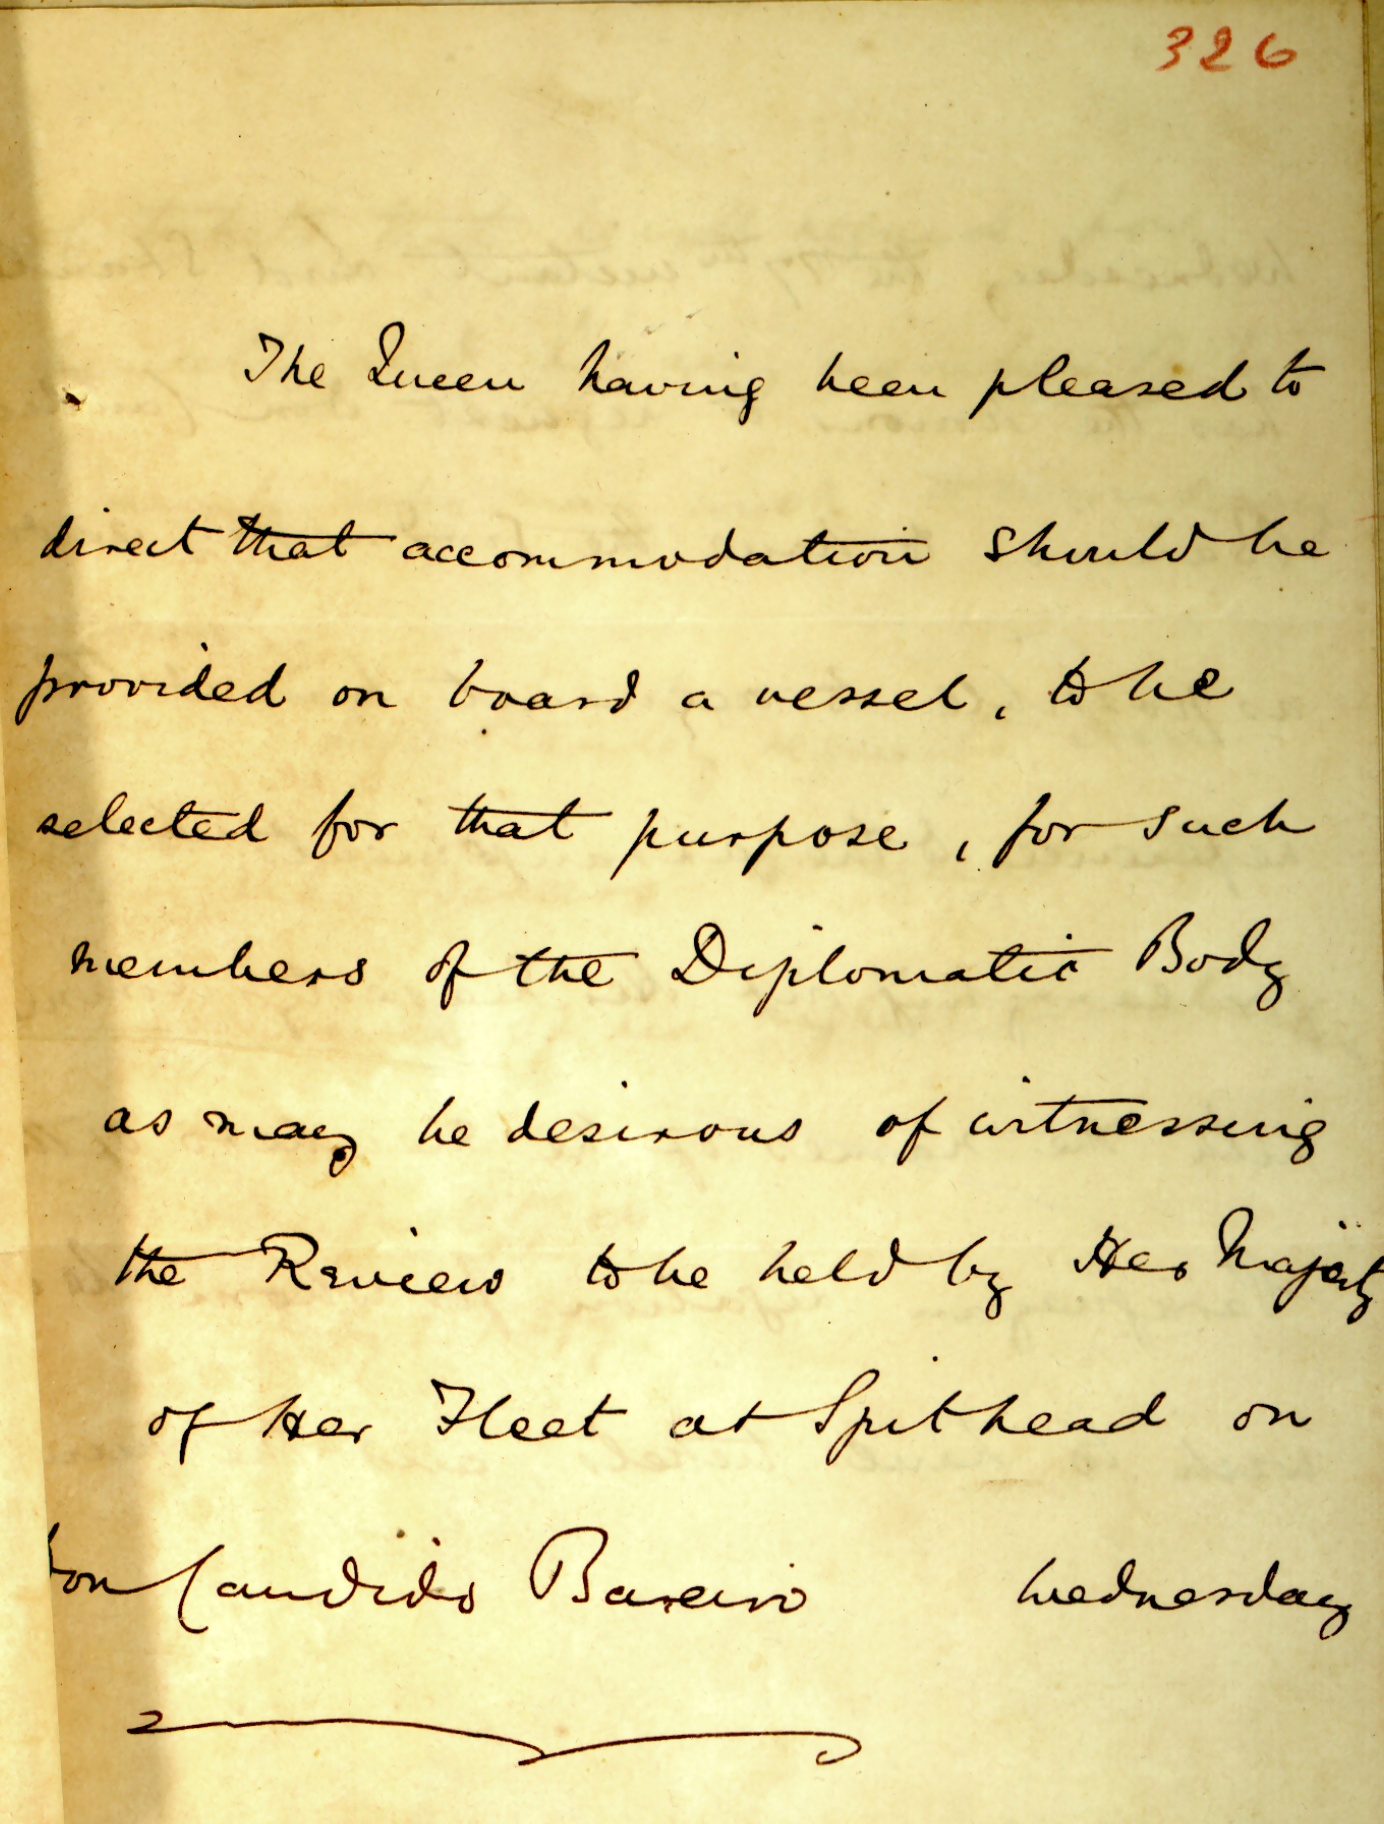 326
The Queen having been pleased to
direct that accommodation should be
provided on board a vessel, to be
selected for that purpose, for such
members of the Diplomatic Body
as may be desirous of witnessing
the Review to be held by Her Majesty
of Her Fleet at Spithead on
Don Candido Bareiro Wednesday